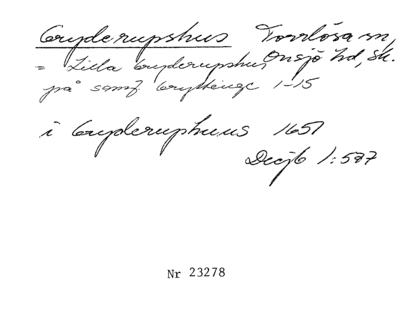 Gryderupshus Torrlösa sn,
= Lilla Gryderupshus, Onsjö hd, Sk.
på samf Gryttinge 1-15
i Gryderuphuus 1651
Decjb 1:587
Nr 23278